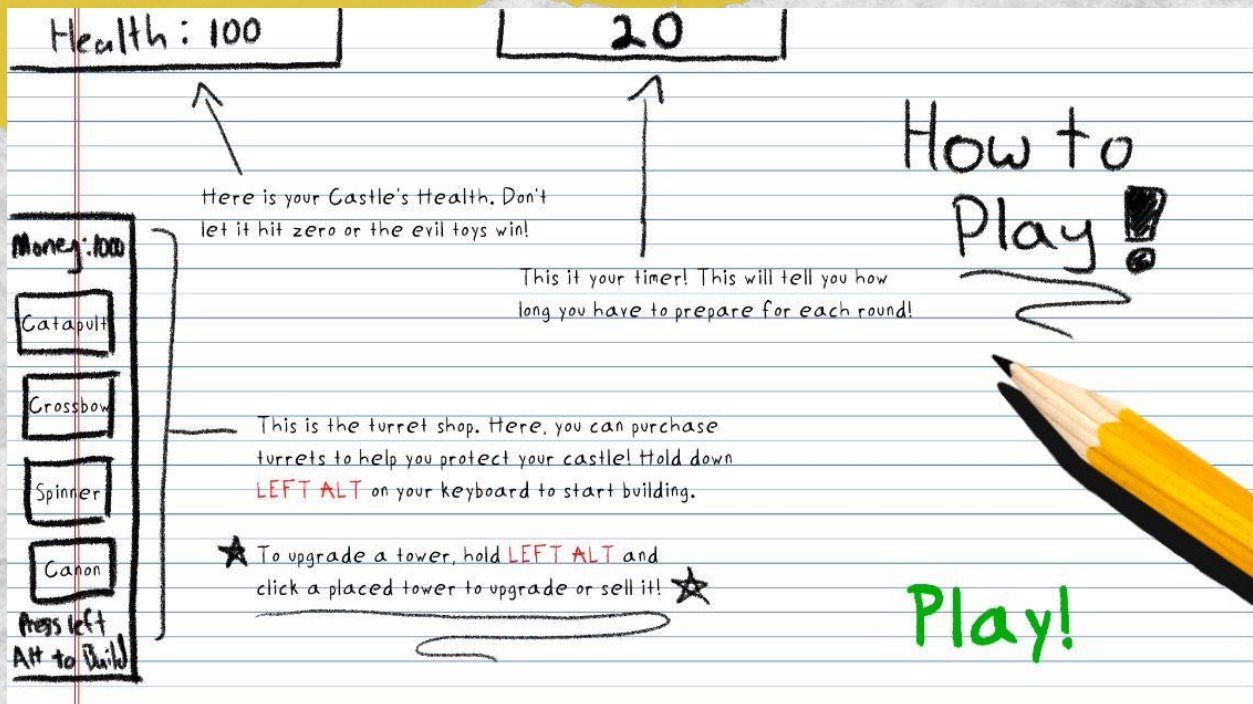 Health: 100
20
How to
Play!
Here is your Castle's Health. Don't
let it hit zero or the evil toys win!
This it your timer! This will tell you how
long you have to prepare for each round!
Money: 1000
Catapult
Crossbow
Spinner
Canon
Press left
Alt to Build
This is the turret shop. Here, you can purchase
turrets to help you protect your castle! Hold down
LEFT ALT on your keyboard to start building.
To upgrade a tower, hold LEFT ALT and
click a placed tower to upgrade or sell it!
Play!